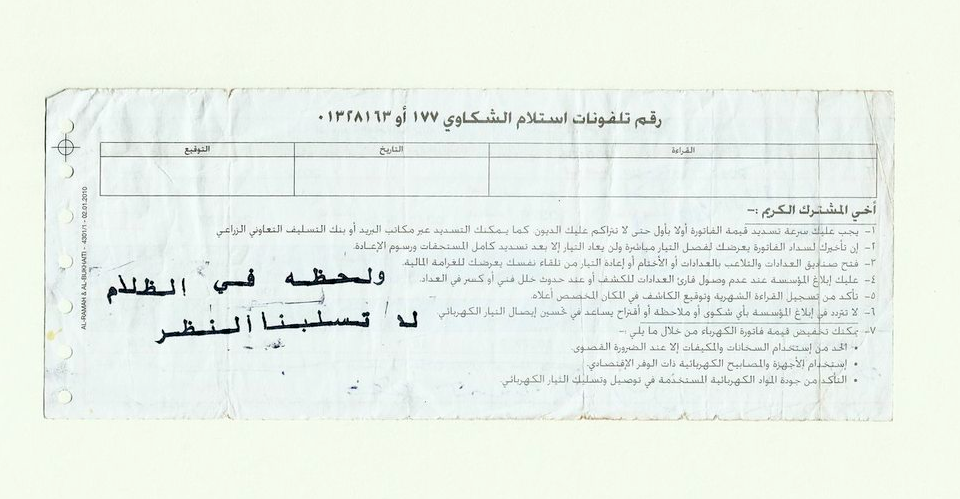 رقم تلفونات استلام الشكاوي ١٧٧ أو ٠١٣٢٨١٦٣
القراءة التاريخ التوقيع
أخي المشترك الكريم :-
١- يجب عليك سرعة تسديد قيمة الفاتورة أولا بأول حتى لا تتراكم عليك الديون كما يمكنك التسديد عبر مكاتب البريد أو بنك التسليف التعاوني الزراعي
٢- إن تأخيرك لسداد الفاتورة يعرضك لفصل التيار مباشرة ولن يعاد التيار إلا بعد تسديد كامل المستحقات ورسوم الإعادة.
٣- فتح صناديق العدادات والتلاعب بالعدادات أو الأختام أو إعادة التيار من تلقاء نفسك يعرضك للغرامة المالية.
٤- عليك إبلاغ المؤسسة عند عدم وصول قارئ العدادات للكشف أو عند حدوث خلل فني أو كسر في العداد
٥- تأكد من تسجيل القراءة الشهرية وتوقيع الكاشف في المكان المخصص أعلاه
٦- لا تتردد في إبلاغ المؤسسة بأي شكوى أو ملاحظة أو أقتراح يساعد في تحسين إيصال التيار الكهربائي
٧- يمكنك تخفيض قيمة فاتورة الكهرباء من خلال ما يلي :-
• الحد من إستخدام السخانات والمكيفات إلا عند الضرورة القصوى.
• إستخدام الأجهزة والمصابيح الكهربائية ذات الوفر الإقتصادي.
• التأكد من جودة المواد الكهربائية المستخدمة في توصيل وتسليك التيار الكهربائي
ولحظه في الظلام
لا تسلبنا النظر
AL-RAMAH & AL-BUKHAITI - 4301/1 - 02.01.2010